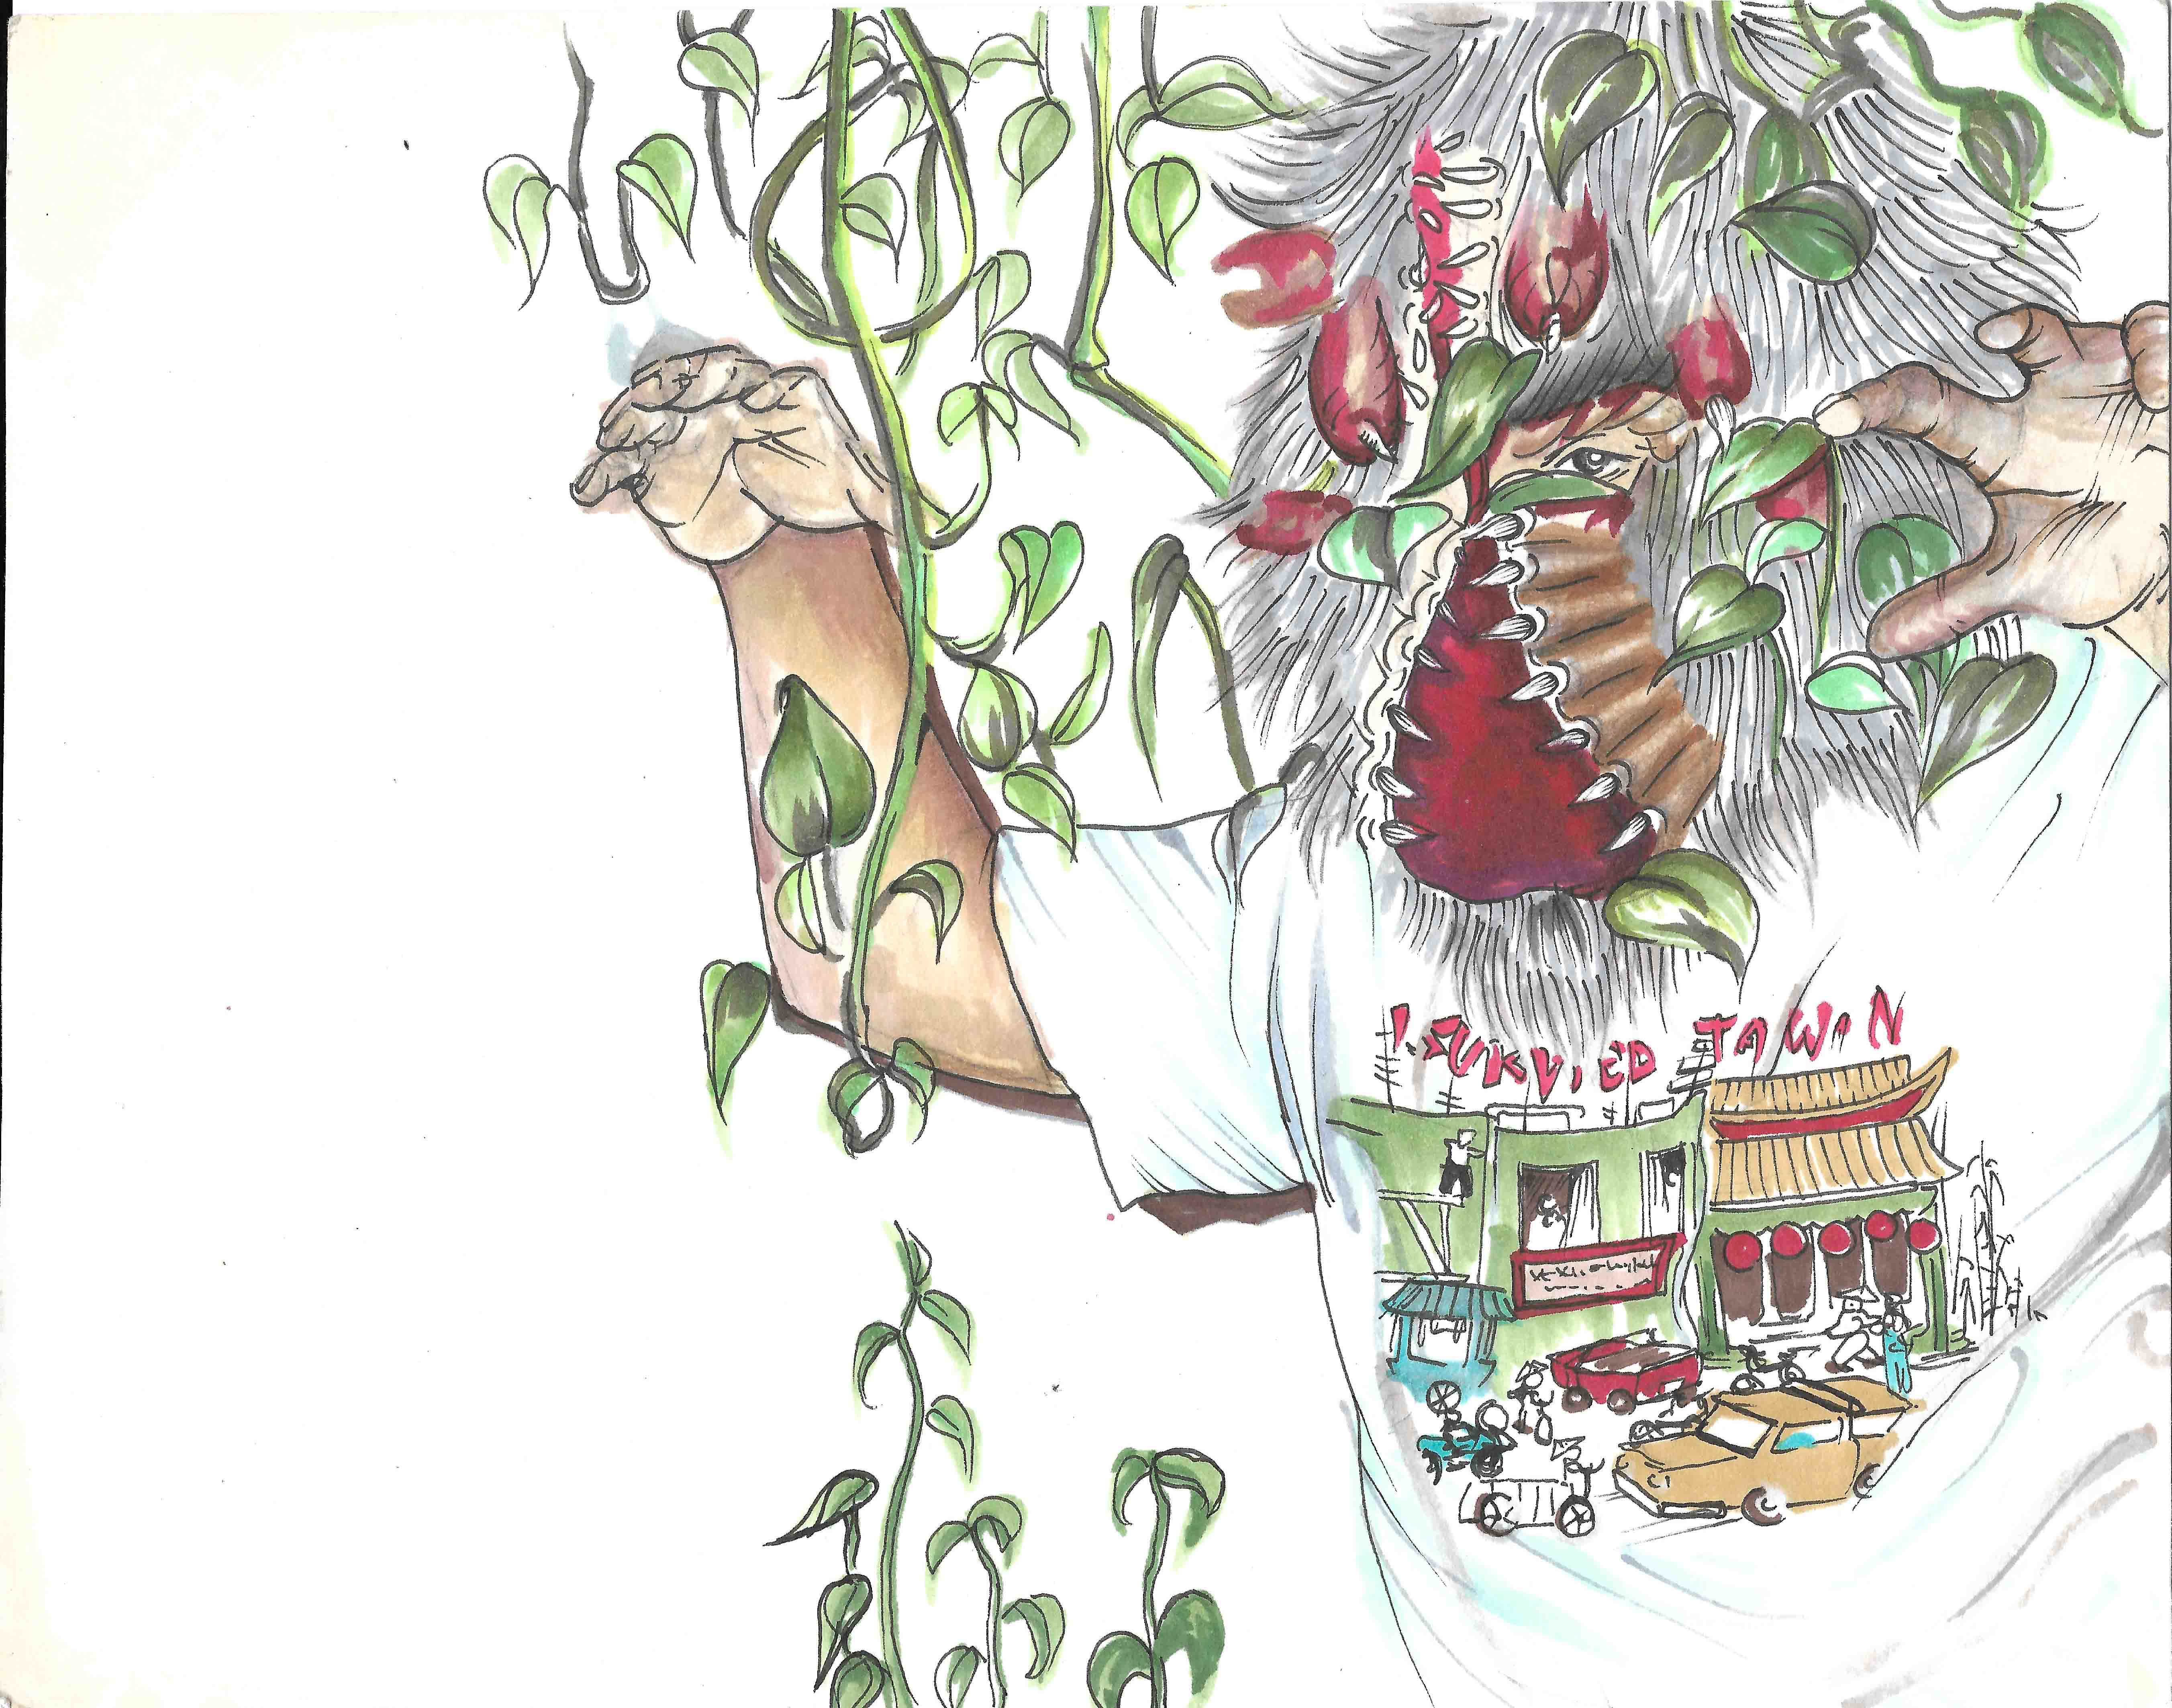 I SURVIED TAWIN